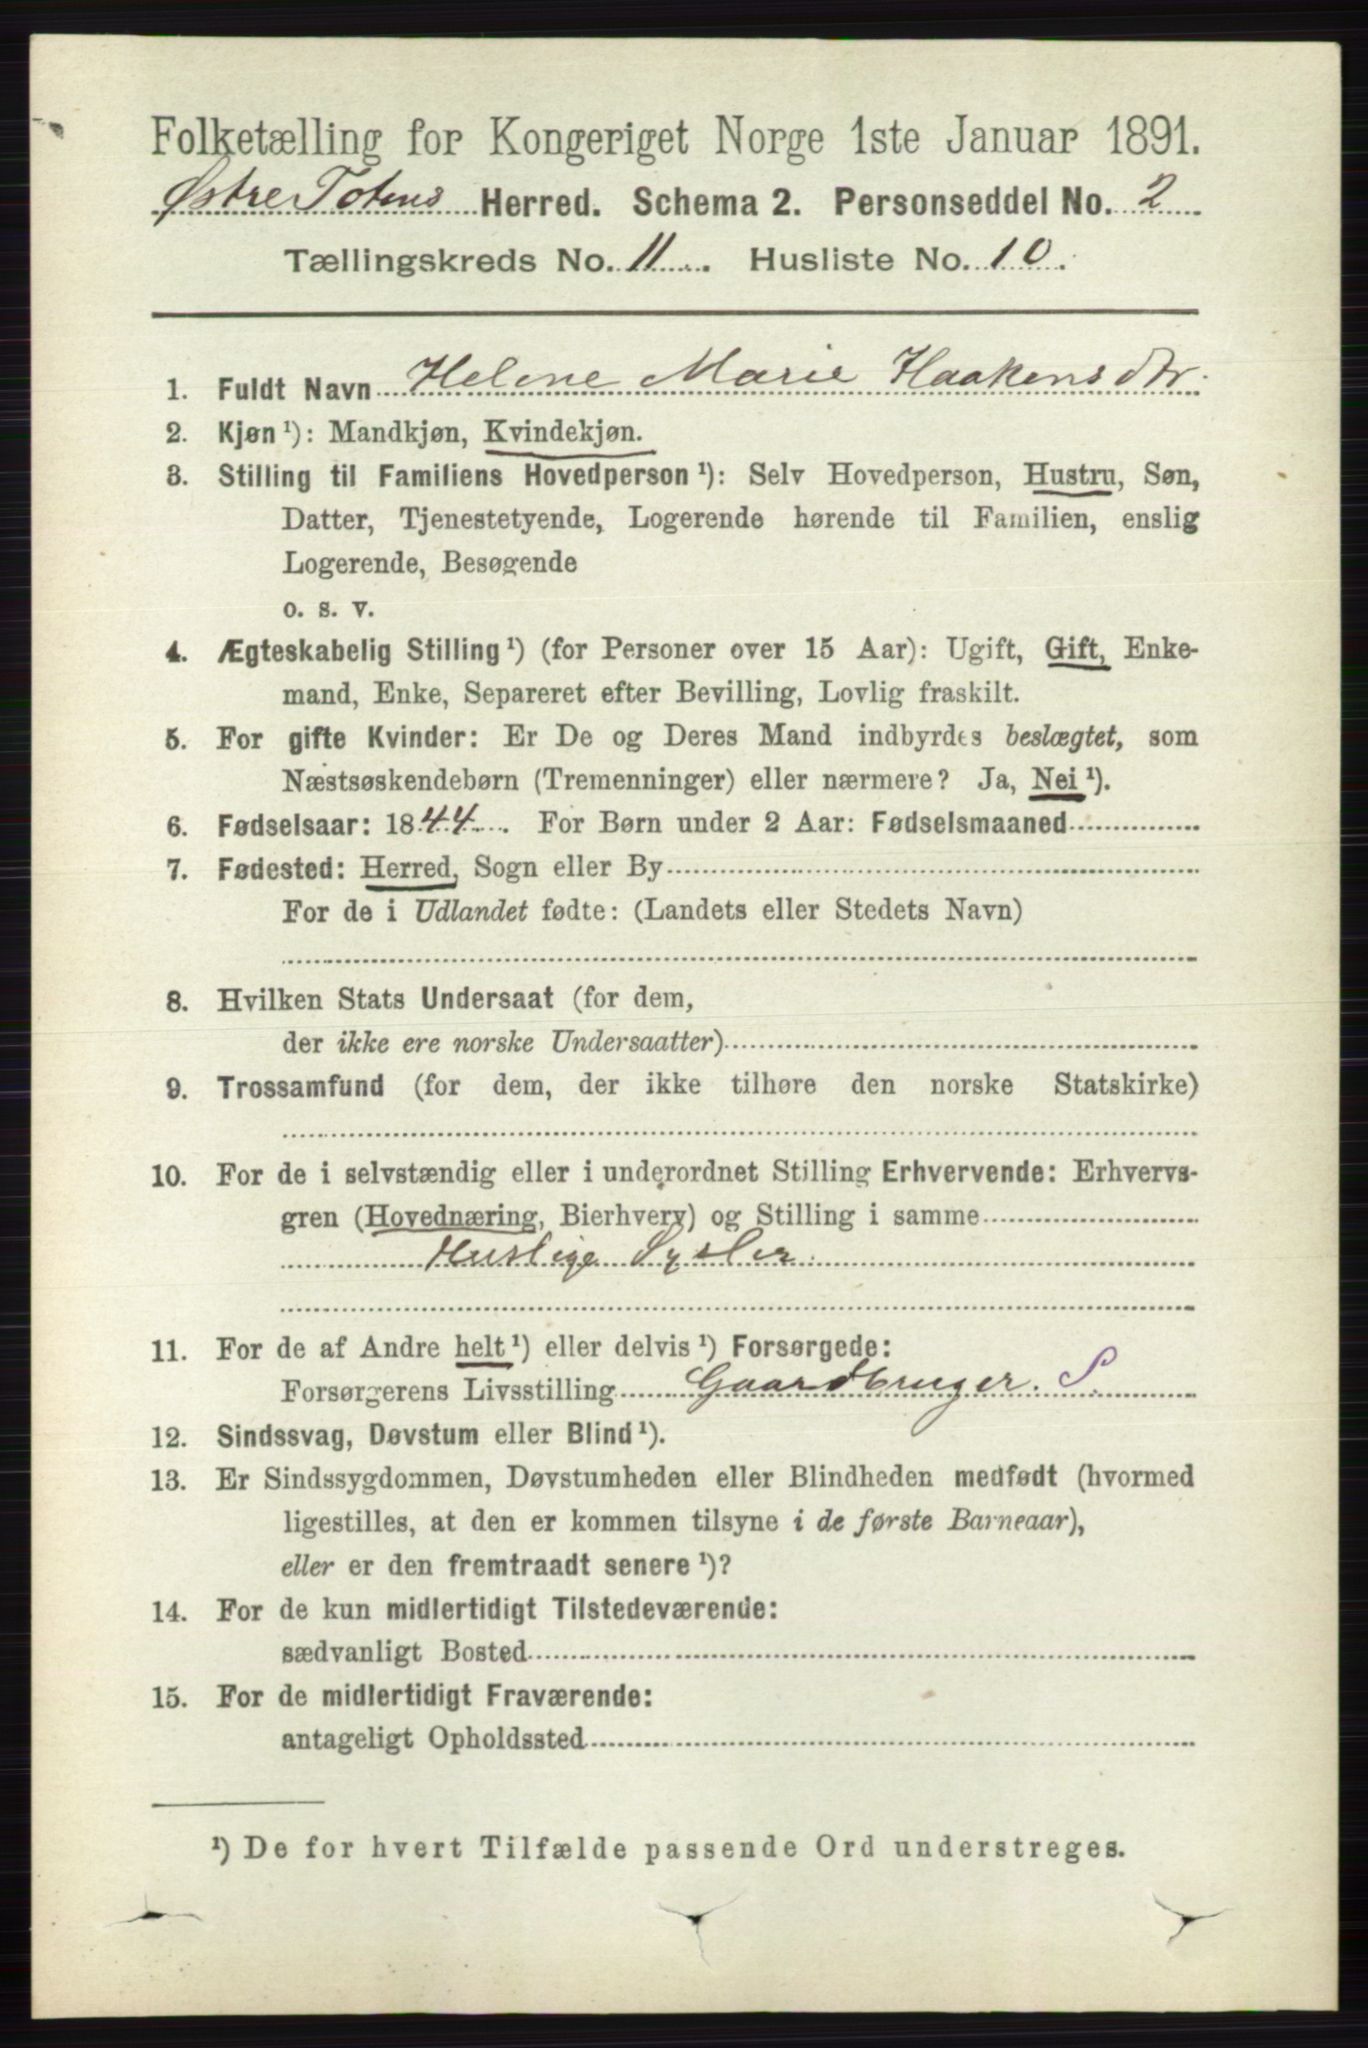 Folketælling for Kongeriget Norge 1ste Januar 1891.
Østre Totens Herred. Schema 2. Personseddel No. 2
Tællingskreds No. 11. Husliste No. 10.
1. Fuldt Navn Helene Marie Haakensdtr.
2. Kjøn¹): Mandkjøn, Kvindekjøn.
3. Stilling til Familiens Hovedperson¹): Selv Hovedperson, Hustru, Søn,
Datter, Tjenestetyende, Logerende hørende til Familien, enslig
Logerende, Besøgende
o. s. v.
4. Ægteskabelig Stilling¹) (for Personer over 15 Aar): Ugift, Gift, Enke-
mand, Enke, Separeret efter Bevilling, Lovlig fraskilt.
5. For gifte Kvinder: Er De og Deres Mand indbyrdes beslægtet, som
Næstsøskendebørn (Tremenninger) eller nærmere? Ja, Nei¹).
6. Fødselsaar: 1844. For Børn under 2 Aar: Fødselsmaaned
7. Fødested: Herred, Sogn eller By
For de i Udlandet fødte: (Landets eller Stedets Navn)
8. Hvilken Stats Undersaat (for dem,
der ikke ere norske Undersaatter)
9. Trossamfund (for dem, der ikke tilhøre den norske Statskirke)
10. For de i selvstændig eller i underordnet Stilling Erhvervende: Erhvervs-
gren (Hovednæring, Bierhverv) og Stilling i samme
Huslige Sysler.
11. For de af Andre helt¹) eller delvis¹) Forsørgede:
Forsørgerens Livsstilling Gaardbruger. S.
12. Sindssvag, Døvstum eller Blind¹).
13. Er Sindssygdommen, Døvstumheden eller Blindheden medfødt (hvormed
ligestilles, at den er kommen tilsyne i de første Barneaar),
eller er den fremtraadt senere¹)?
14. For de kun midlertidigt Tilstedeværende:
sædvanligt Bosted
15. For de midlertidigt Fraværende:
antageligt Opholdssted
¹) De for hvert Tilfælde passende Ord understreges.